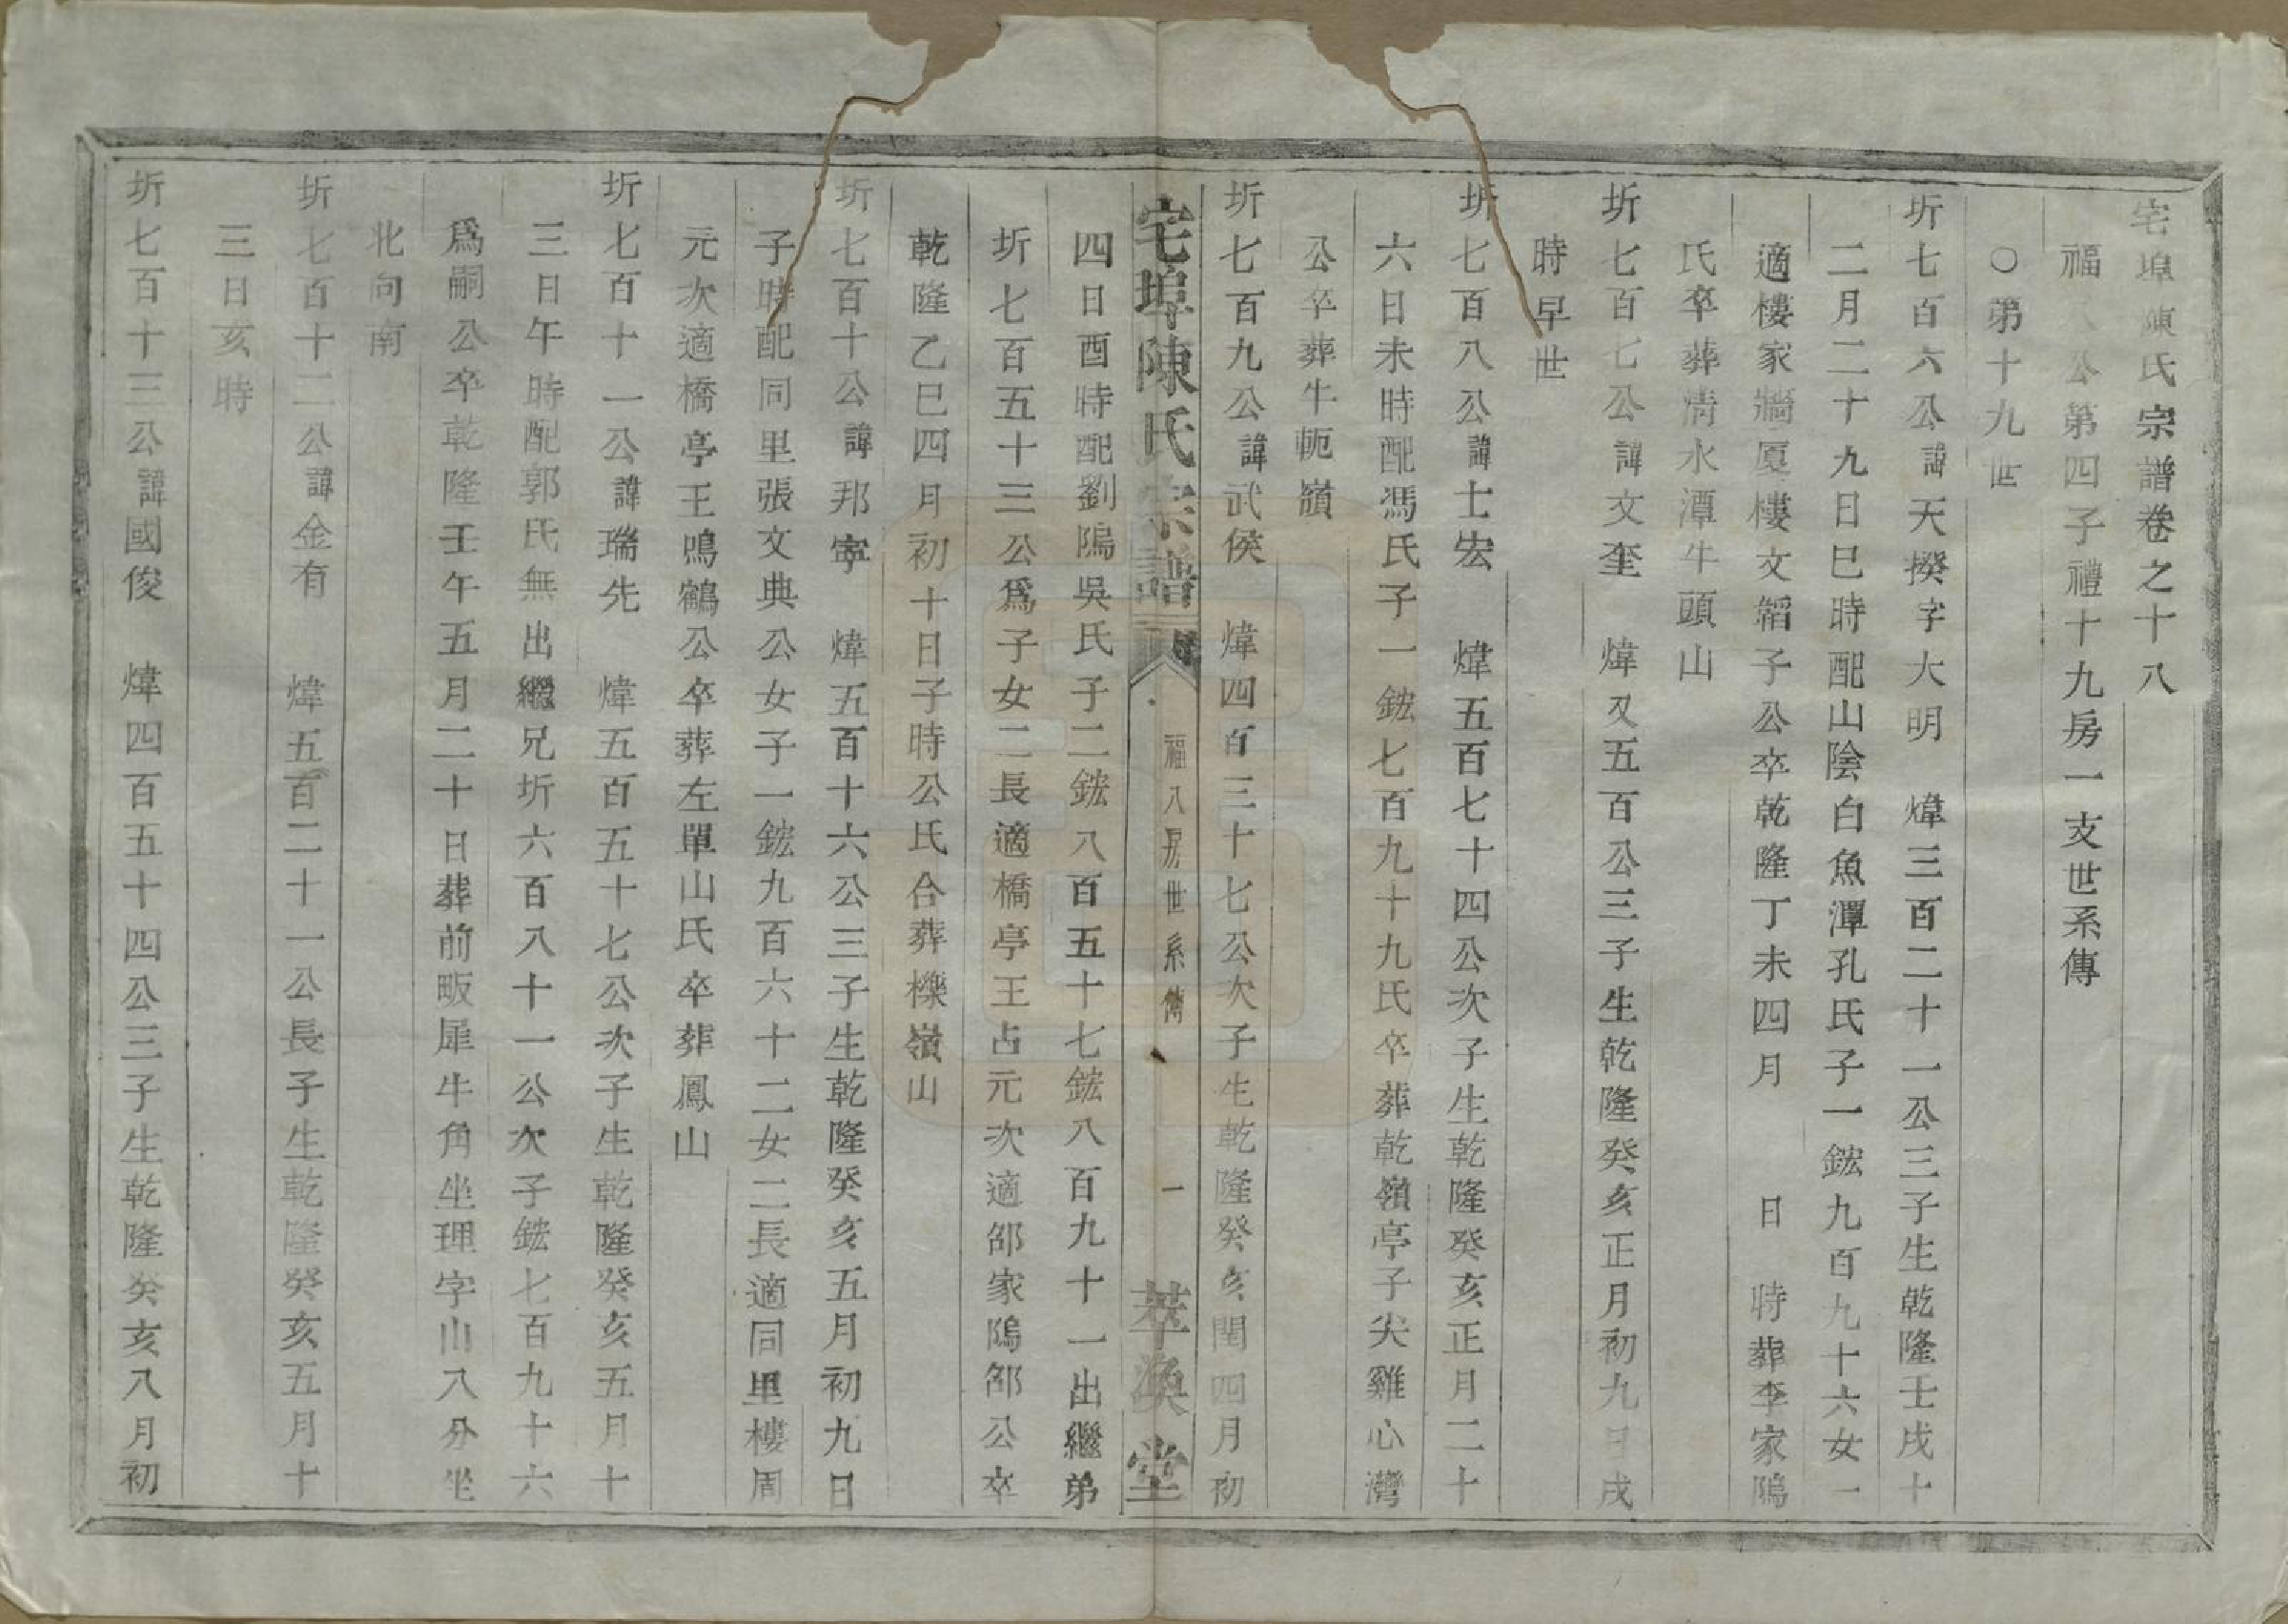 宅埠陳氏宗譜卷之十八
福八公第四子禮十九房一支世系傳
○第十九世
圻七百六公諱天揆字大明　煒三百二十一公三子生乾隆壬戌十
二月二十九日巳時配山陰白魚潭孔氏子一鋐九百九十六女一
適樓家牆厦樓文縚子公卒乾隆丁未四月　日　時葬李家隝
氏卒葬清水潭牛頭山
圻七百七公諱文奎　煒又五百公三子生乾隆癸亥正月初九日戌
時早世
圻七百八公諱士宏　煒五百七十四公次子生乾隆癸亥正月二十
六日未時配馮氏子一鋐七百九十九氏卒葬乾嶺亭子尖雞心灣
公卒葬牛軛嶺
圻七百九公諱武侯　煒四百三十七公次子生乾隆癸亥閏四月初
宅埠陳氏宗譜　福八房世系傳　一　萃渙堂
四日酉時配劉隝吳氏子二鋐八百五十七鋐八百九十一出繼弟
圻七百五十三公爲子女二長適橋亭王占元次適郃家隝郃公卒
乾隆乙巳四月初十日子時公氏合葬櫟嶺山
圻七百十公諱邦寧　煒五百十六公三子生乾隆癸亥五月初九日
子時配同里張文典公女子一鋐九百六十二女二長適同里樓周
元次適橋亭王鳴鶴公卒葬左單山氏卒葬鳳山
圻七百十一公諱瑞先　煒五百五十七公次子生乾隆癸亥五月十
三日午時配郭氏無出繼兄圻六百八十一公次子鋐七百九十六
爲嗣公卒乾隆壬午五月二十日葬前畈犀牛角坐理字山八分坐
北向南
圻七百十二公諱金有　煒五百二十一公長子生乾隆癸亥五月十
三日亥時
圻七百十三公諱國俊　煒四百五十四公三子生乾隆癸亥八月初